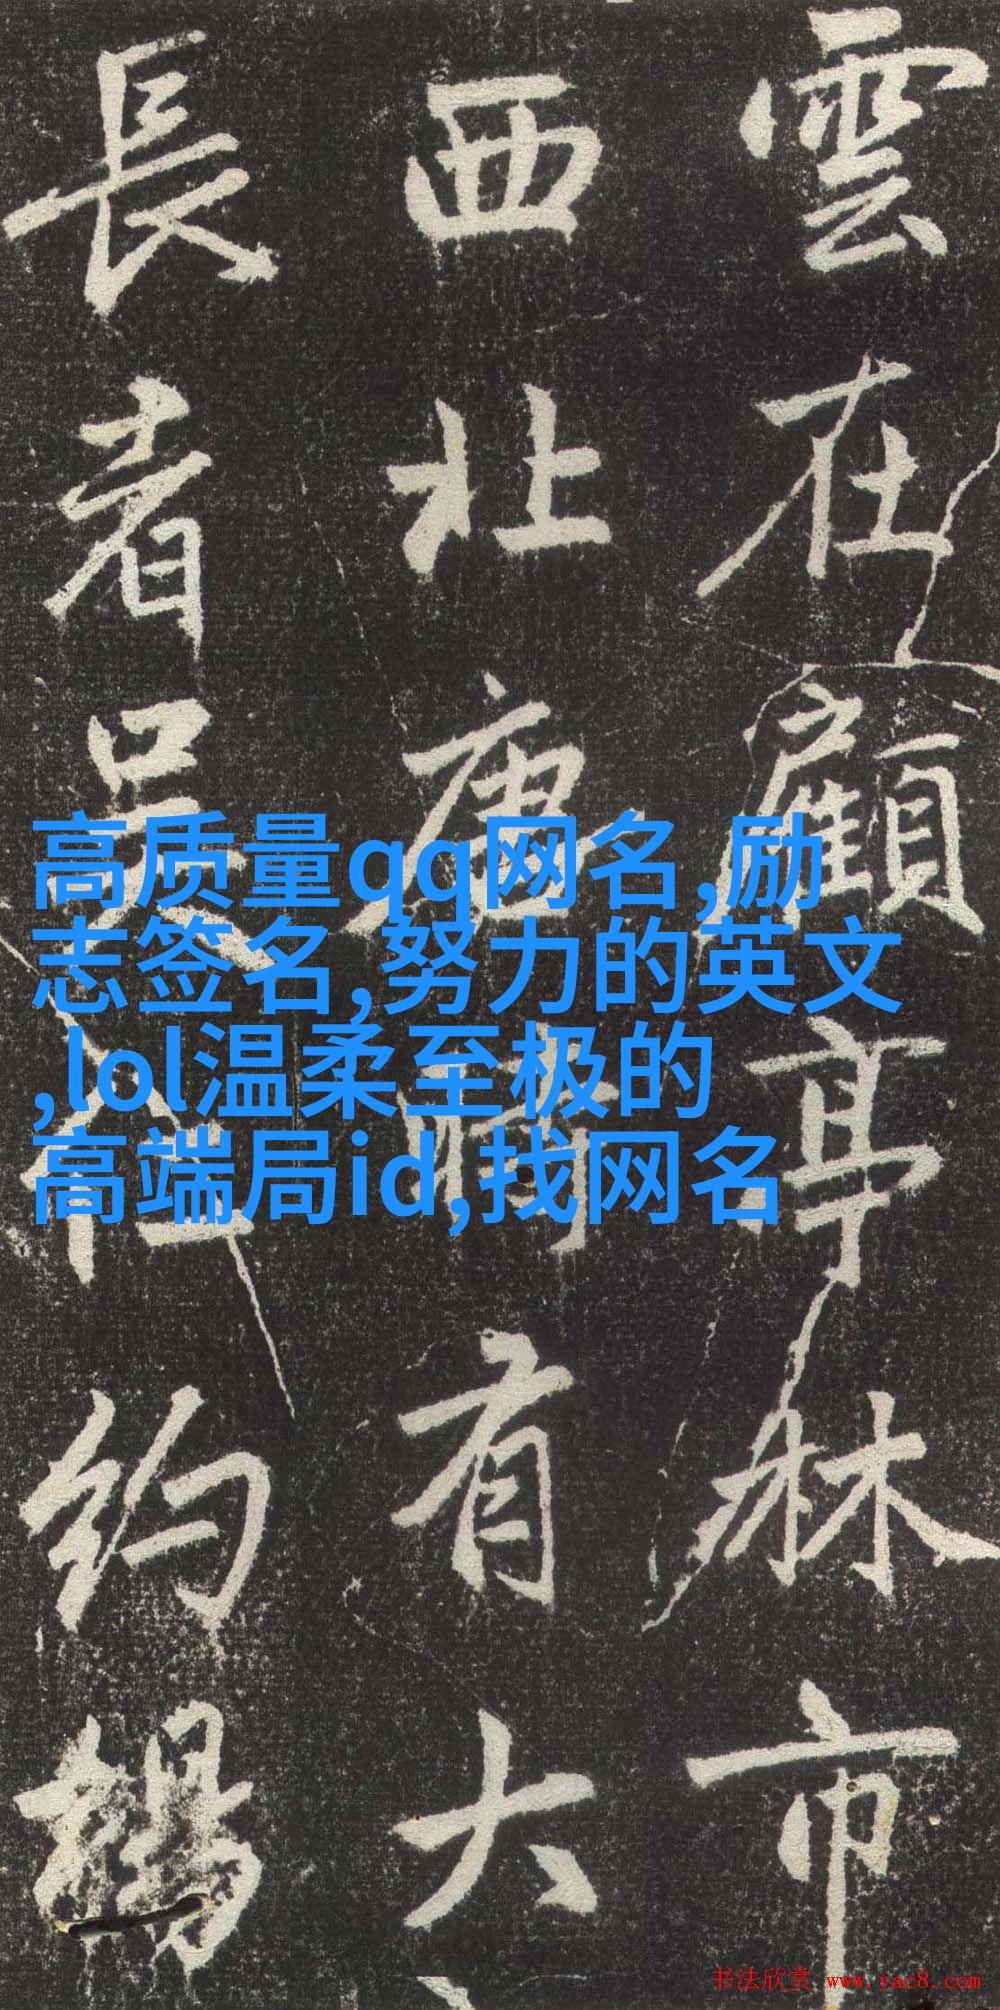 雲在顧亭林市
西北唐時有大
長者吳約
高质量qq网名,励
志签名,努力的英文
,lol温柔至极的
高端局id,找网名
书法欣赏 www.yac8.com